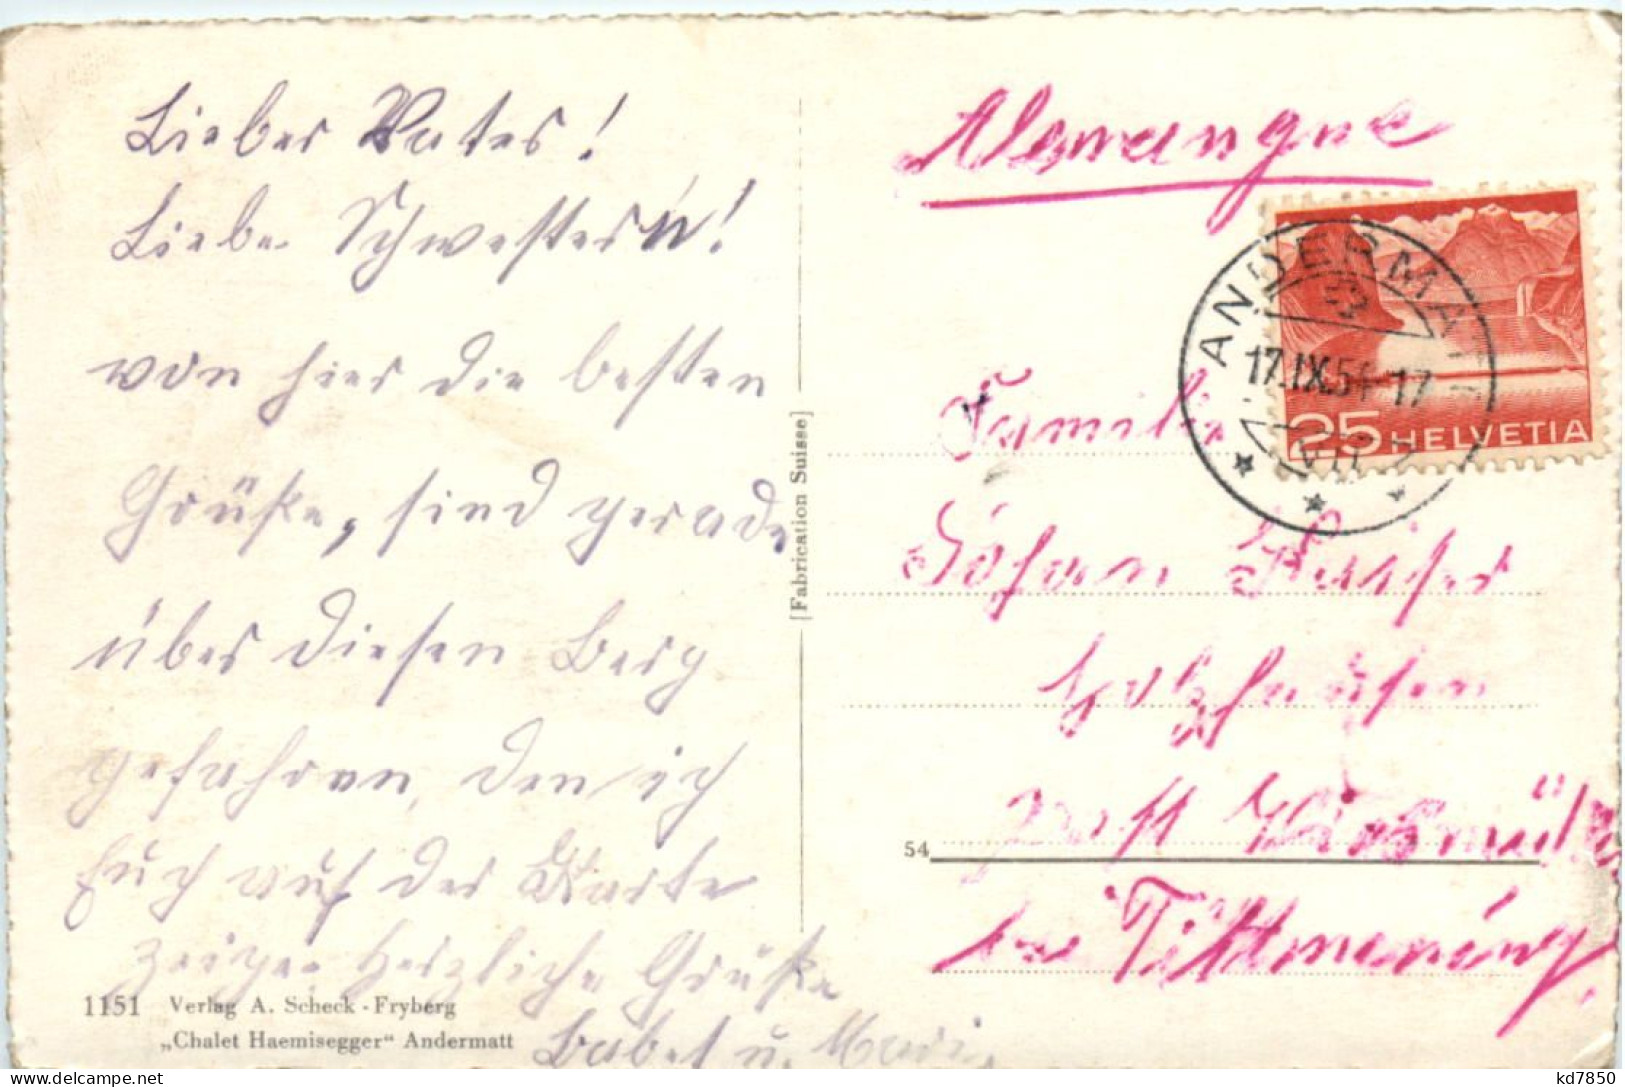 Lieber Vater!
Liebe Schwestern!
von hier die besten
Grüße, sind gerade
über diesen Berg
gefahren, den ich
Euch auf der Karte
zeige. Herzliche Grüße
Babet u. Mari.
1151 Verlag A. Scheck - Fryberg
„Chalet Haemisegger“ Andermatt
[Fabrication Suisse]
ANDERMATT
17.IX.51-17
25 HELVETIA
Familie
Johann
Holzhausen
Post
54
bei Tittmoning
kd7850